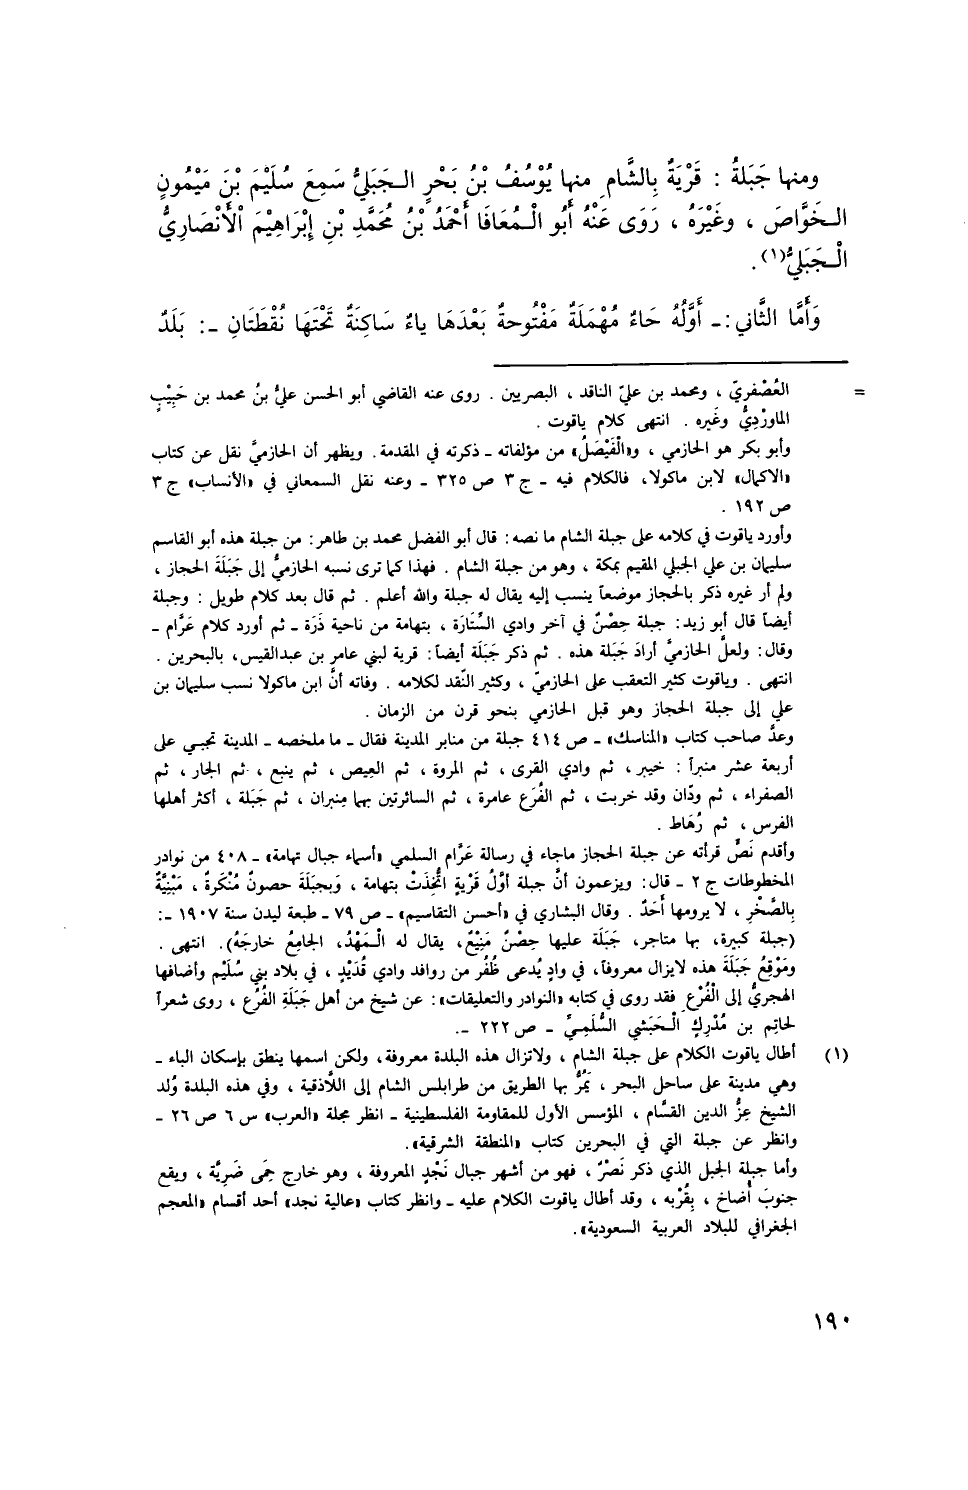 ومنها جَبَلةُ : قَرْيَةٌ بِالشَّام منها يُوْسُفُ بْنُ بَحْرٍ الـجَبَليُّ سَمِعَ سُلَيْمَ بْنَ مَيْمُونٍ
الـخَوَّاصَ ، وغَيْرَهُ ، رَوَى عَنْهُ أَبُو الْـمُعَافَا أَحْمَدُ بْنُ مُحَمَّدِ بْنِ إِبْرَاهِيْمَ اْلأَنْصَارِيُّ
الْـجَبَليُّ(١) .
وَأَمَّا الثَّاني :ـ أَوَّلُهُ حَاءٌ مُهْمَلَةٌ مَفْتُوحةٌ بَعْدَهَا ياءٌ سَاكِنَةٌ تَحْتَهَا نُقْطَتَانِ ـ: بَلَدٌ
= العُصْفريّ ، ومحمد بن عليّ الناقد ، البصريين . روى عنه القاضي أبو الحسن عليُّ بنُ محمد بن حَبِيْبٍ
الماورْدِيُّ وغَيره . انتهى كلام ياقوت .
وأبو بكر هو الحازمي ، و«الْفَيْصَلُ» من مؤلفاته ـ ذكرته في المقدمة . ويظهر أن الحازميَّ نقل عن كتاب
«الاكمال» لابن ماكولا، فالكلام فيه ـ ج ٣ ص ٣٢٥ ـ وعنه نقل السمعاني في «الأنساب» ج ٣
ص ١٩٢ .
وأورد ياقوت في كلامه على جبلة الشام ما نصه : قال أبو الفضل محمد بن طاهر : من جبلة هذه أبو القاسم
سليمان بن علي الجبلي المقيم بمكة ، وهو من جبلة الشام . فهذا كما ترى نسبه الحازميُّ إلى جَبَلَة الحجاز ،
ولم أر غيره ذكر بالحجاز موضعاً ينسب إليه يقال له جبلة والله أعلم . ثم قال بعد كلام طويل : وجبلة
أيضاً قال أبو زيد : جبلة حِصْنٌ في آخر وادي السِّتَارَة ، بتهامة من ناحية ذَرَة ـ ثم أورد كلام عَرَّام ـ
وقال : ولعلَّ الحازميَّ أرادَ جَبَلة هذه . ثم ذكر جَبَلَة أيضاً : قرية لبني عامر بن عبدالقيس، بالبحرين .
انتهى . وياقوت كثير التعقب على الحازميّ ، وكثير النّقد لكلامه . وفاته أنَّ ابن ماكولا نسب سليمان بن
علي إلى جبلة الحجاز وهو قبل الحازمي بنحو قرن من الزمان .
وعدَّ صاحب كتاب «المناسك» ـ ص ٤١٤ جبلة من منابر المدينة فقال ـ ما ملخصه ـ المدينة تجبـي على
أربعة عشر منبراً : خيبر ، ثم وادي القرى ، ثم المروة ، ثم العيص ، ثم ينبع ، ثم الجار ، ثم
الصفراء ، ثم ودّان وقد خربت ، ثم الفُرَع عامرة ، ثم السائرتين بهما مِنبران ، ثم جَبَلة ، أكثر أهلها
الفرس ، ثم رُهَاط .
وأقدم نَصٍّ قرأته عن جبلة الحجاز ماجاء في رسالة عَرَّام السلمي «أسماء جبال تهامة» ـ ٤٠٨ من نوادر
المخطوطات ج ٢ ـ قال : ويزعمون أنَّ جبلة أوَّلُ قَرْيةٍ اتُّخِذَتْ بتهامة ، وَبِجبَلَةَ حصونٌ مُنْكَرةٌ ، مَبْنِيَّةٌ
بِالصَّخْرِ ، لا يرومها أَحَدٌ . وقال البشاري في «أحسن التقاسيم» ـ ص ٧٩ ـ طبعة ليدن سنة ١٩٠٧ ـ:
(جبلة كبيرة، بها متاجر، جَبَلَة عليها حِصْنٌ مَنِيْعٌ، يقال له الْـمَهْدُ، الجامِعُ خارجَهُ). انتهى .
ومَوْقِعُ جَبَلَةَ هذه لايزال معروفاً، في وادٍ يُدعى ظُفُر من روافد وادي قُدَيْدٍ ، في بلاد بني سُلَيْم وأضافها
الهجريُّ إلى الْفُرْعِ فقد روى في كتابه «النوادر والتعليقات» : عن شيخ من أهل جَبَلَةِ الفُرُع ، روى شعراً
لحاتِم بن مُدْرِكٍ الْـحَبَشي السُّلَمِيِّ ـ ص ٢٢٢ ـ.
(١) أطال ياقوت الكلام على جبلة الشام ، ولاتزال هذه البلدة معروفة، ولكن اسمها ينطق بإسكان الباء ـ
وهي مدينة على ساحل البحر ، يَمُرُّ بها الطريق من طرابلس الشام إلى اللَّاذقية ، وفي هذه البلدة وُلد
الشيخ عِزُّ الدين القسَّام ، المؤسس الأول للمقاومة الفلسطينية ـ انظر مجلة «العرب» س ٦ ص ٢٦ ـ
وانظر عن جبلة التي في البحرين كتاب «المنطقة الشرقية» .
وأما جبلة الجبل الذي ذكر نَصْرٌ ، فهو من أشهر جبال نَجْدٍ المعروفة ، وهو خارج حِمَى ضَرِيَّة ، ويقع
جنوبَ أُضاخ ، بِقُرْبه ، وقد أطال ياقوت الكلام عليه ـ وانظر كتاب «عالية نجد» أحد أقسام «المعجم
الجغرافي للبلاد العربية السعودية» .
١٩٠